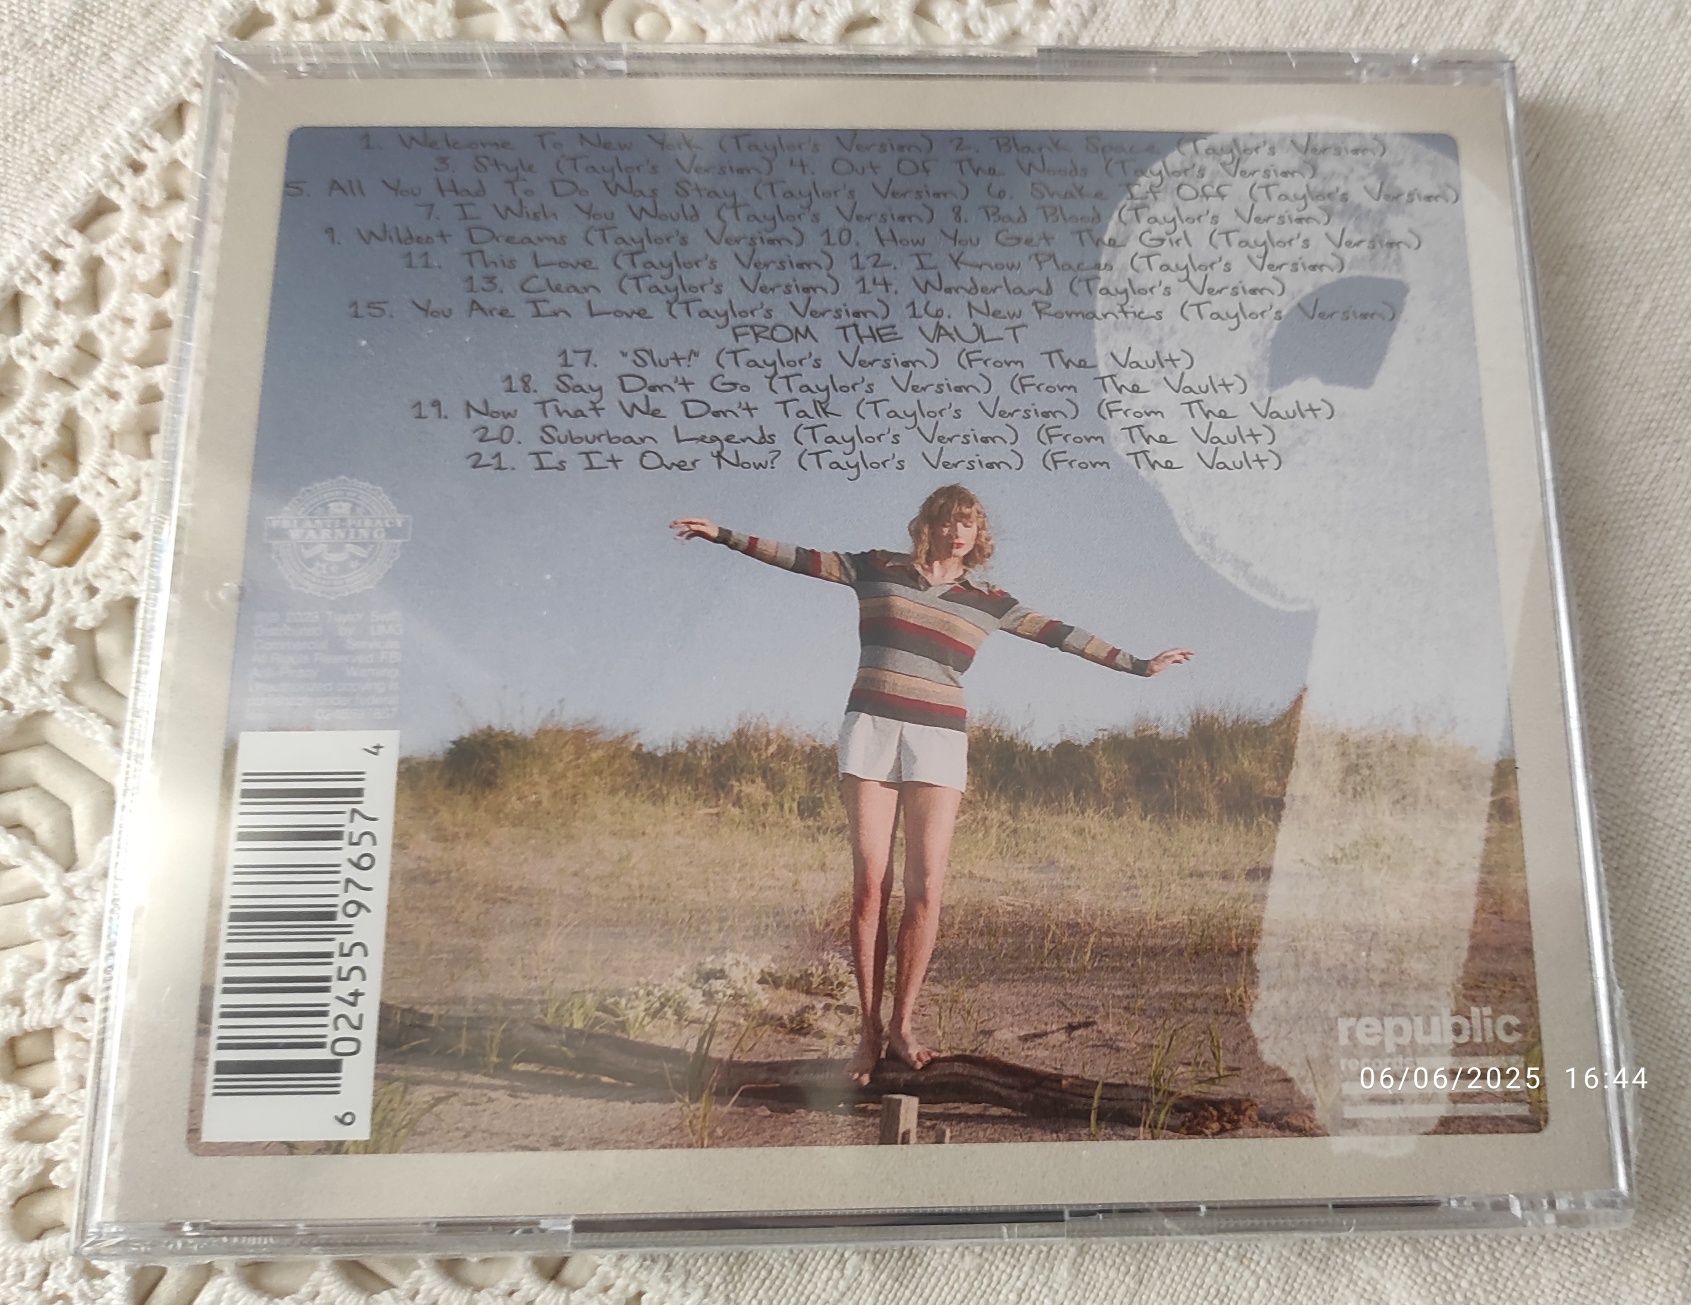 1. Welcome To New York (Taylor's Version) 2. Blank Space (Taylor's Version)
3. Style (Taylor's Version) 4. Out Of The Woods (Taylor's Version)
5. All You Had To Do Was Stay (Taylor's Version) 6. Shake It Off (Taylor's Version)
7. I Wish You Would (Taylor's Version) 8. Bad Blood (Taylor's Version)
9. Wildest Dreams (Taylor's Version) 10. How You Get The Girl (Taylor's Version)
11. This Love (Taylor's Version) 12. I Know Places (Taylor's Version)
13. Clean (Taylor's Version) 14. Wonderland (Taylor's Version)
15. You Are In Love (Taylor's Version) 16. New Romantics (Taylor's Version)
FROM THE VAULT
17. "Slut!" (Taylor's Version) (From The Vault)
18. Say Don't Go (Taylor's Version) (From The Vault)
19. Now That We Don't Talk (Taylor's Version) (From The Vault)
20. Suburban Legends (Taylor's Version) (From The Vault)
21. Is It Over Now? (Taylor's Version) (From The Vault)
FBI ANTI-PIRACY
WARNING
2023 Taylor Swift
Distributed by UMG
Commercial Services
All Rights Reserved. FBI
Anti-Piracy Warning:
Unauthorized copying is
6 02455 97657 4
republic
records
06/06/2025 16:44